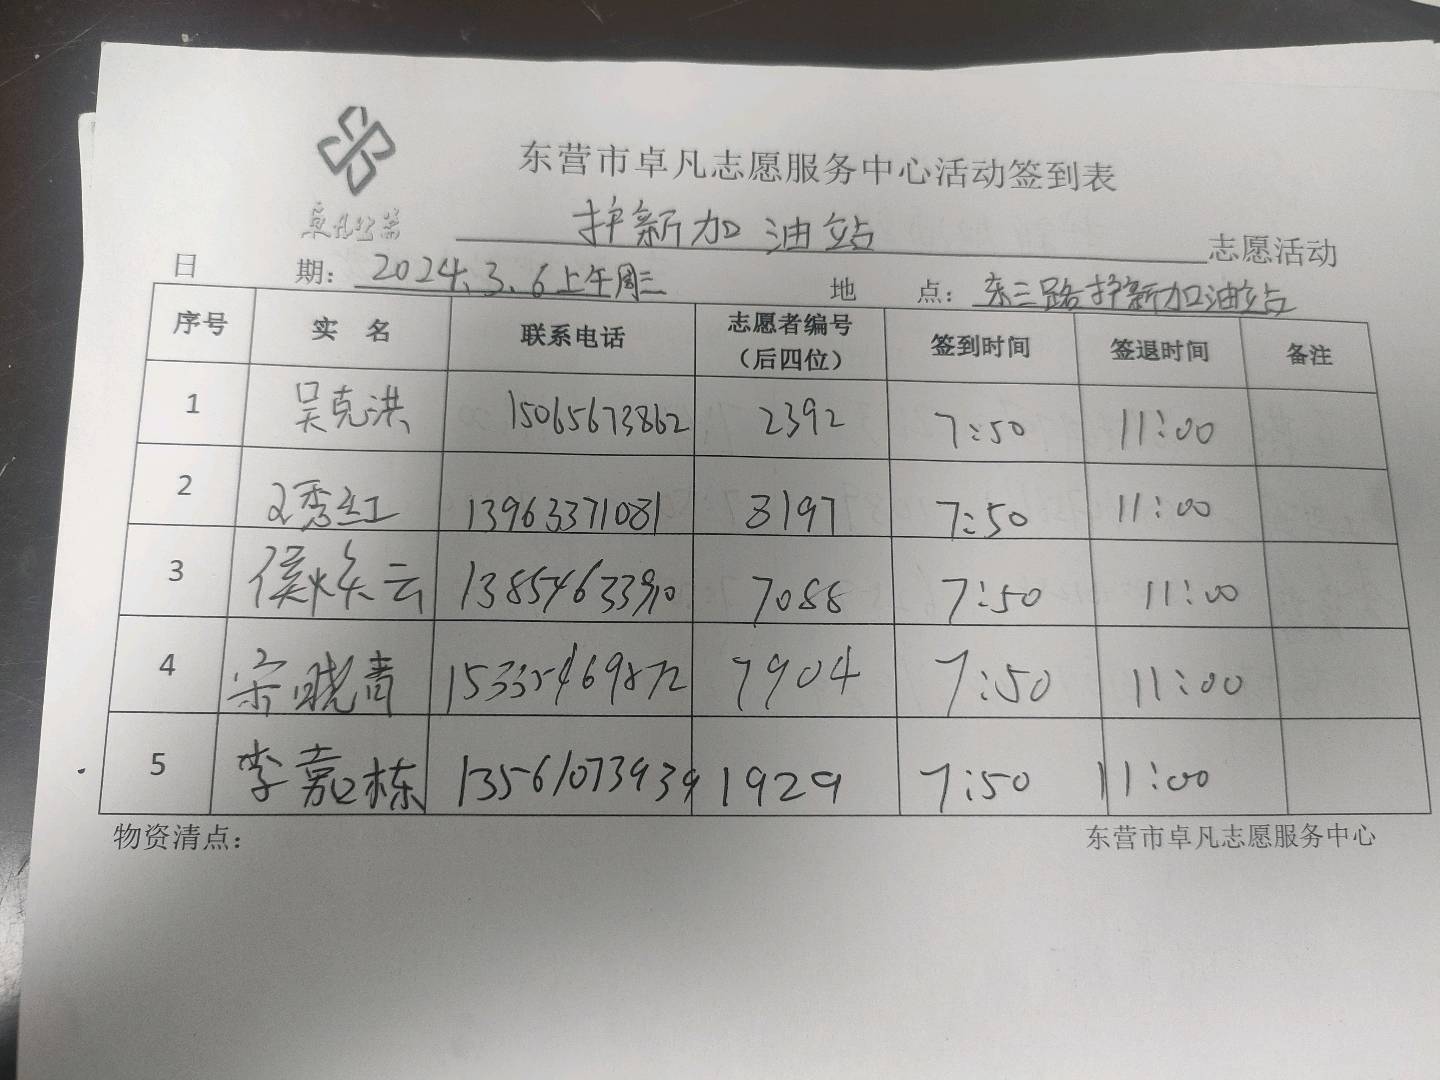 东营市卓凡志愿服务中心活动签到表
卓凡公益
护新加油站 志愿活动
日 期：2024.3.6上午周三 地 点：东三路护新加油站
序号 实 名 联系电话 志愿者编号（后四位） 签到时间 签退时间 备注
1 吴克洪 15065673862 2392 7:50 11:00
2 秀红 13963371081 8197 7:50 11:00
3 侯焕云 13854633910 7088 7:50 11:00
4 宋晓青 15335469872 7904 7:50 11:00
5 李嘉栋 13561073939 1929 7:50 11:00
物资清点： 东营市卓凡志愿服务中心